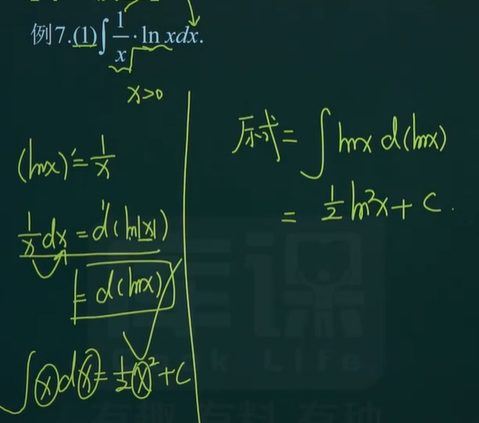 例7.(1)∫1/x·ln xdx.
x>0
(lnx)'=1/x
1/x dx=d(ln|x|)
=d(lnx)
∫xdx=1/2x²+C
原式=∫lnx d(lnx)
=1/2ln²x+C.